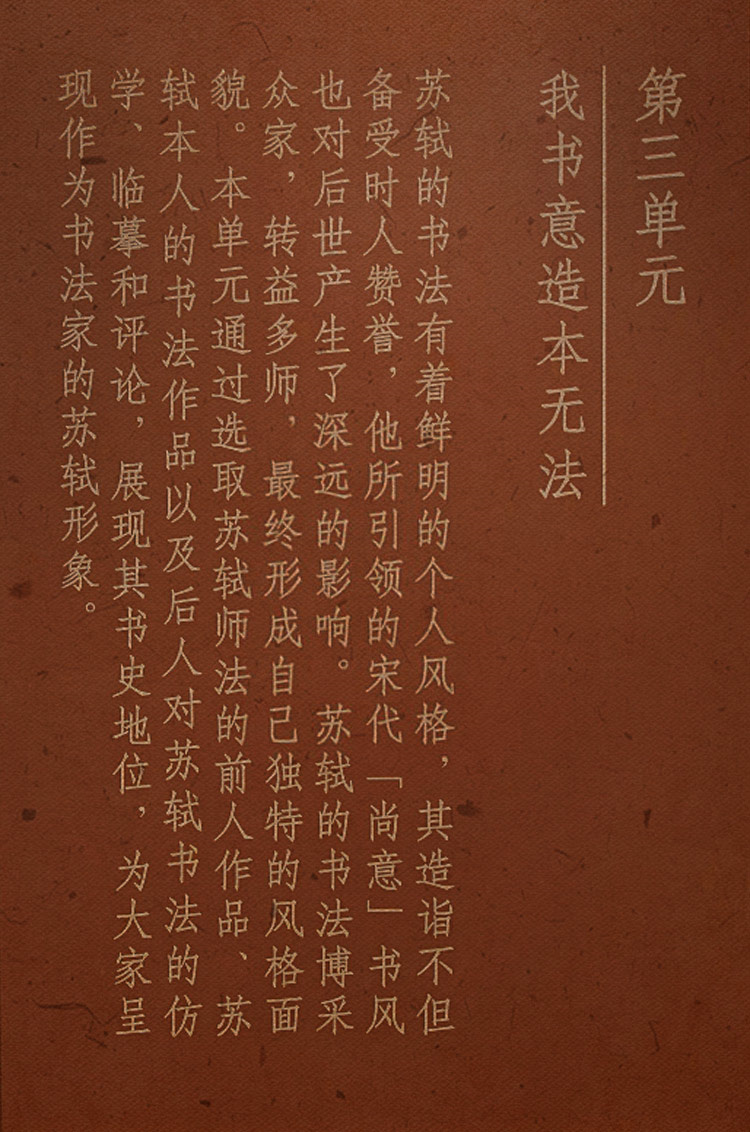 第三单元
我书意造本无法
苏轼的书法有着鲜明的个人风格，其造诣不但
备受时人赞誉，他所引领的宋代「尚意」书风
也对后世产生了深远的影响。苏轼的书法博采
众家，转益多师，最终形成自己独特的风格面
貌。本单元通过选取苏轼师法的前人作品、苏
轼本人的书法作品以及后人对苏轼书法的仿
学、临摹和评论，展现其书史地位，为大家呈
现作为书法家的苏轼形象。